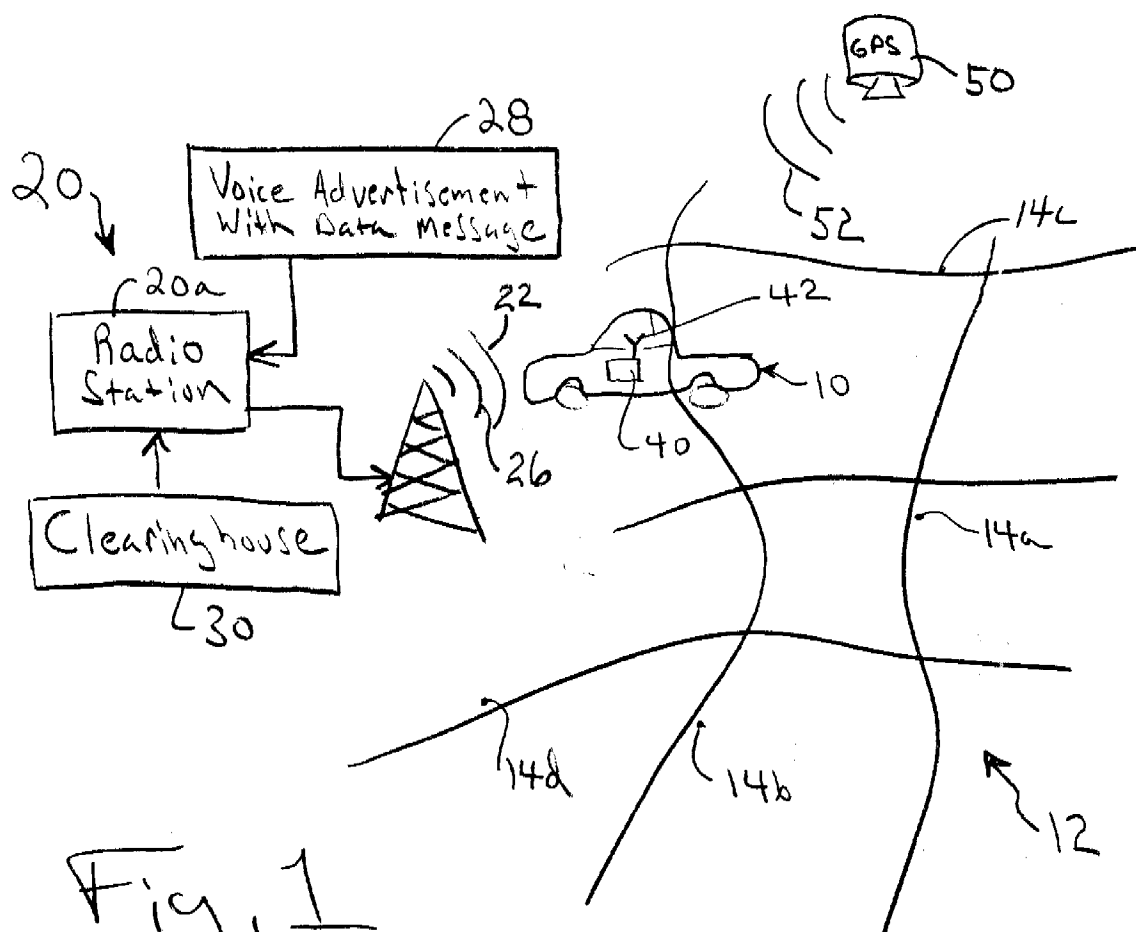 GPS
50
28
20
Voice Advertisement
With Data Message
52
14c
20a
22
42
Radio
Station
10
40
26
Clearinghouse
14a
30
14d
14b
12
Fig. 1